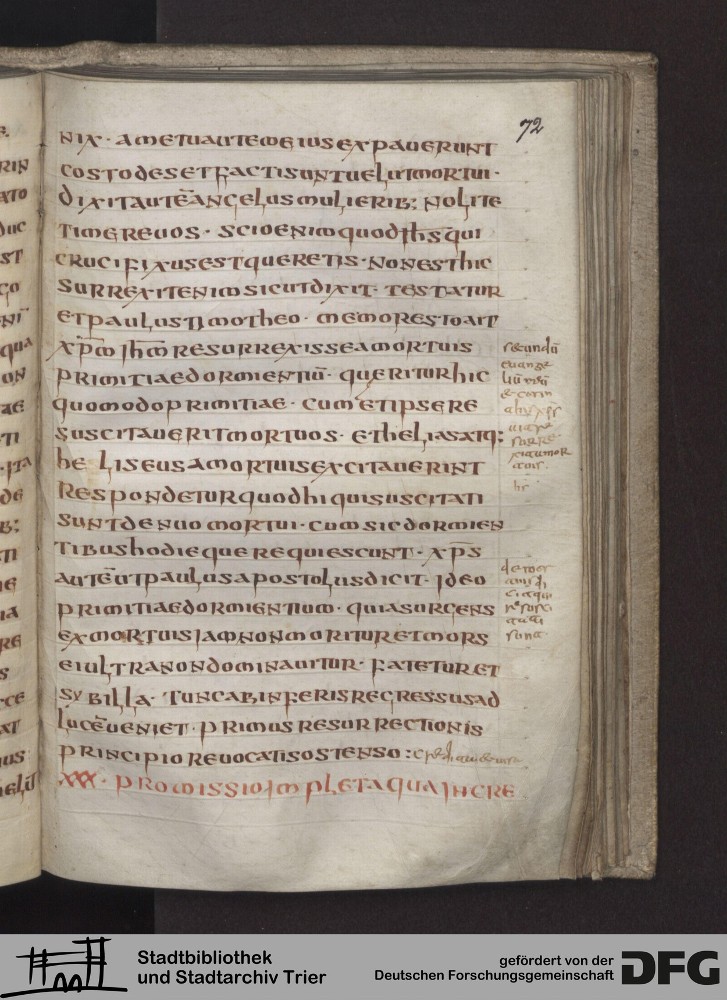 72
NIX · AMETUAUTEMEIUSEXPAUERUNT
COSTODESETFACTISUNTUELUTMORTUI ·
DIXITAUTEĀNGELUSMULIERIB; NOLITE
TIMEREUOS · SCIOENIMQUODIHS̅QUI
CRUCIFIXUSESTQUERETIS · NONESTHIC
SURREXITENIMSICUTDIXIT · TESTATUR
ETPAULUSTIMOTHEO · MEMORESTOAIT
XP̅M̅IHM̅RESURREXISSEAMORTUIS
PRIMITIAEDORMIENTIŪ · QUERITURHIC
QUOMODOPRIMITIAE · CUMETIPSERE
SUSCITAUERITMORTUOS · ETHELIASATQ:
HELISEUSAMORTUISEXCITAUERINT
RESPONDETURQUODHIQUISUSCITATI
SUNTDENUOMORTUI · CUMSICDORMIEN
TIBUSHODIEQUEREQUIESCUNT · XP̅S
AUTĒUTPAULUSAPOSTOLUSDICIT · IDEO
PRIMITIAEDORMIENTIUM · QUIASURGENS
EXMORTUISIAMNONMORITURETMORS
EIULTRANONDOMINAUITUR · FATETURET
SYBILLA · TUNCABINFERISREGRESSUSAD
LUCĒUENIET · PRIMUSRESURRECTIONIS
PRINCIPIOREUOCATISOSTENSO :
XXX · PROMISSIOIMPLETAQUAINCRE
secundū
euange
surre
xit a mor
Stadtbibliothek
und Stadtarchiv Trier
gefördert von der
Deutschen Forschungsgemeinschaft
DFG